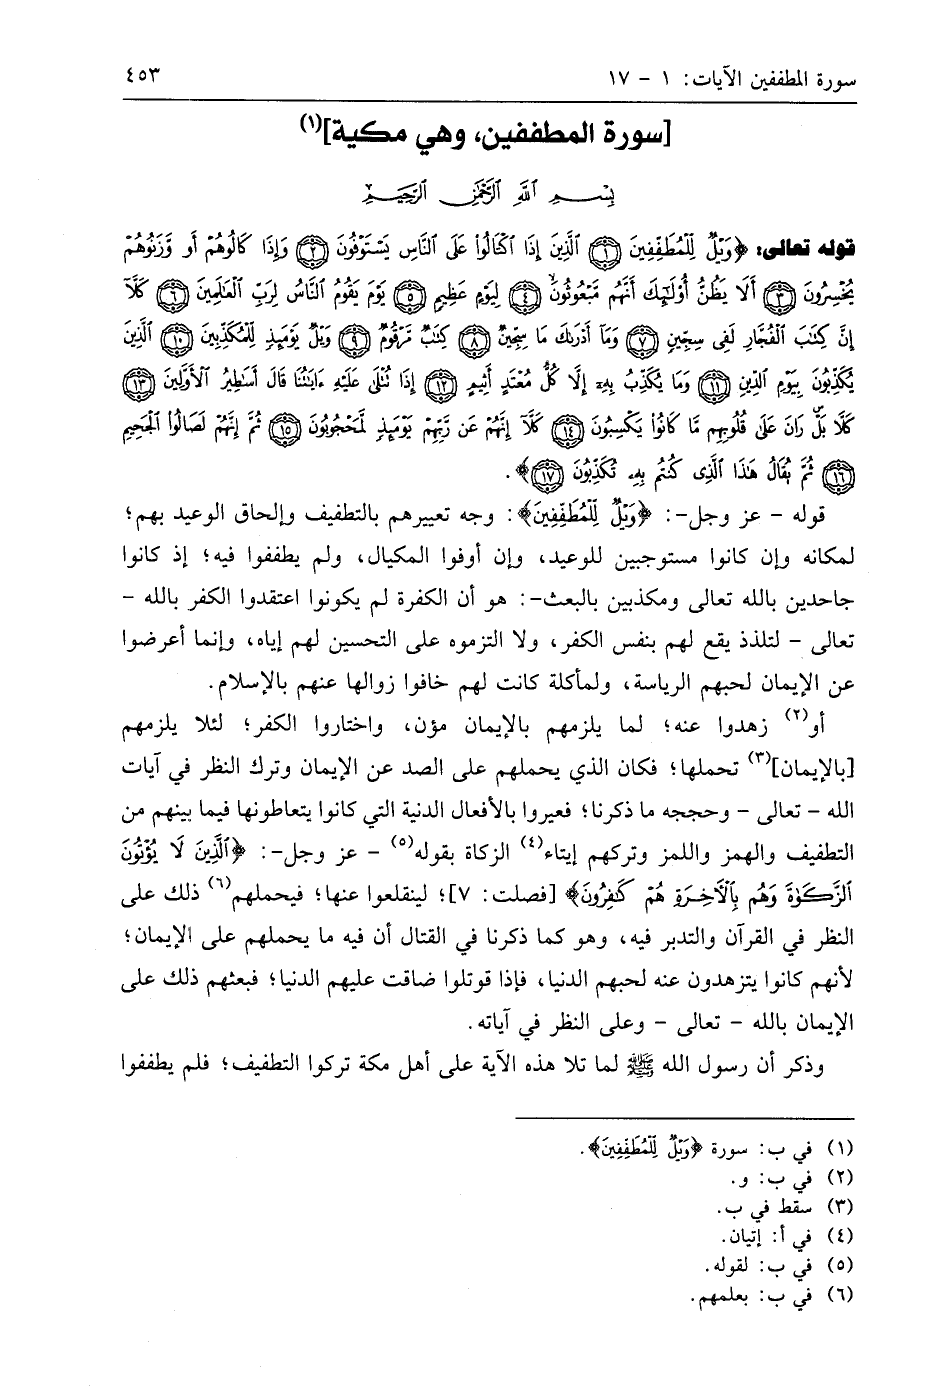 سورة المطففين الآيات: ١ - ١٧ ٤٥٣
[سورة المطففين، وهي مكية](١)
بِسْمِ ٱللَّهِ ٱلرَّحْمَٰنِ ٱلرَّحِيمِ
قوله تعالى: ﴿وَيْلٌ لِّلْمُطَفِّفِينَ ١ ٱلَّذِينَ إِذَا ٱكْتَالُوا۟ عَلَى ٱلنَّاسِ يَسْتَوْفُونَ ٢ وَإِذَا كَالُوهُمْ أَو وَّزَنُوهُمْ
يُخْسِرُونَ ٣ أَلَا يَظُنُّ أُو۟لَٰٓئِكَ أَنَّهُم مَّبْعُوثُونَ ٤ لِيَوْمٍ عَظِيمٍ ٥ يَوْمَ يَقُومُ ٱلنَّاسُ لِرَبِّ ٱلْعَٰلَمِينَ ٦ كَلَّآ
إِنَّ كِتَٰبَ ٱلْفُجَّارِ لَفِى سِجِّينٍ ٧ وَمَآ أَدْرَىٰكَ مَا سِجِّينٌ ٨ كِتَٰبٌ مَّرْقُومٌ ٩ وَيْلٌ يَوْمَئِذٍ لِّلْمُكَذِّبِينَ ١٠ ٱلَّذِينَ
يُكَذِّبُونَ بِيَوْمِ ٱلدِّينِ ١١ وَمَا يُكَذِّبُ بِهِۦٓ إِلَّا كُلُّ مُعْتَدٍ أَثِيمٍ ١٢ إِذَا تُتْلَىٰ عَلَيْهِ ءَايَٰتُنَا قَالَ أَسَٰطِيرُ ٱلْأَوَّلِينَ ١٣
كَلَّا بَلْ رَانَ عَلَىٰ قُلُوبِهِم مَّا كَانُوا۟ يَكْسِبُونَ ١٤ كَلَّآ إِنَّهُمْ عَن رَّبِّهِمْ يَوْمَئِذٍ لَّمَحْجُوبُونَ ١٥ ثُمَّ إِنَّهُمْ لَصَالُوا۟ ٱلْجَحِيمِ
١٦ ثُمَّ يُقَالُ هَٰذَا ٱلَّذِى كُنتُم بِهِۦ تُكَذِّبُونَ ١٧﴾.
قوله - عز وجل-: ﴿وَيْلٌ لِّلْمُطَفِّفِينَ﴾: وجه تعييرهم بالتطفيف وإلحاق الوعيد بهم؛
لمكانه وإن كانوا مستوجبين للوعيد، وإن أوفوا المكيال، ولم يطففوا فيه؛ إذ كانوا
جاحدين بالله تعالى ومكذبين بالبعث-: هو أن الكفرة لم يكونوا اعتقدوا الكفر بالله -
تعالى - لتلذذ يقع لهم بنفس الكفر، ولا التزموه على التحسين لهم إياه، وإنما أعرضوا
عن الإيمان لحبهم الرياسة، ولمأكلة كانت لهم خافوا زوالها عنهم بالإسلام.
أو(٢) زهدوا عنه؛ لما يلزمهم بالإيمان مؤن، واختاروا الكفر؛ لئلا يلزمهم
[بالإيمان](٣) تحملها؛ فكان الذي يحملهم على الصد عن الإيمان وترك النظر في آيات
الله - تعالى - وحججه ما ذكرنا؛ فعيروا بالأفعال الدنية التي كانوا يتعاطونها فيما بينهم من
التطفيف والهمز واللمز وتركهم إيتاء(٤) الزكاة بقوله(٥) - عز وجل-: ﴿ٱلَّذِينَ لَا يُؤْتُونَ
ٱلزَّكَوٰةَ وَهُم بِٱلْأَخِرَةِ هُمْ كَٰفِرُونَ﴾ [فصلت: ٧]؛ لينقلعوا عنها؛ فيحملهم(٦) ذلك على
النظر في القرآن والتدبر فيه، وهو كما ذكرنا في القتال أن فيه ما يحملهم على الإيمان؛
لأنهم كانوا يتزهدون عنه لحبهم الدنيا، فإذا قوتلوا ضاقت عليهم الدنيا؛ فبعثهم ذلك على
الإيمان بالله - تعالى - وعلى النظر في آياته.
وذكر أن رسول الله ﷺ لما تلا هذه الآية على أهل مكة تركوا التطفيف؛ فلم يطففوا
(١) في ب: سورة ﴿وَيْلٌ لِّلْمُطَفِّفِينَ﴾.
(٢) في ب: و.
(٣) سقط في ب.
(٤) في أ: إتيان.
(٥) في ب: لقوله.
(٦) في ب: بعلمهم.